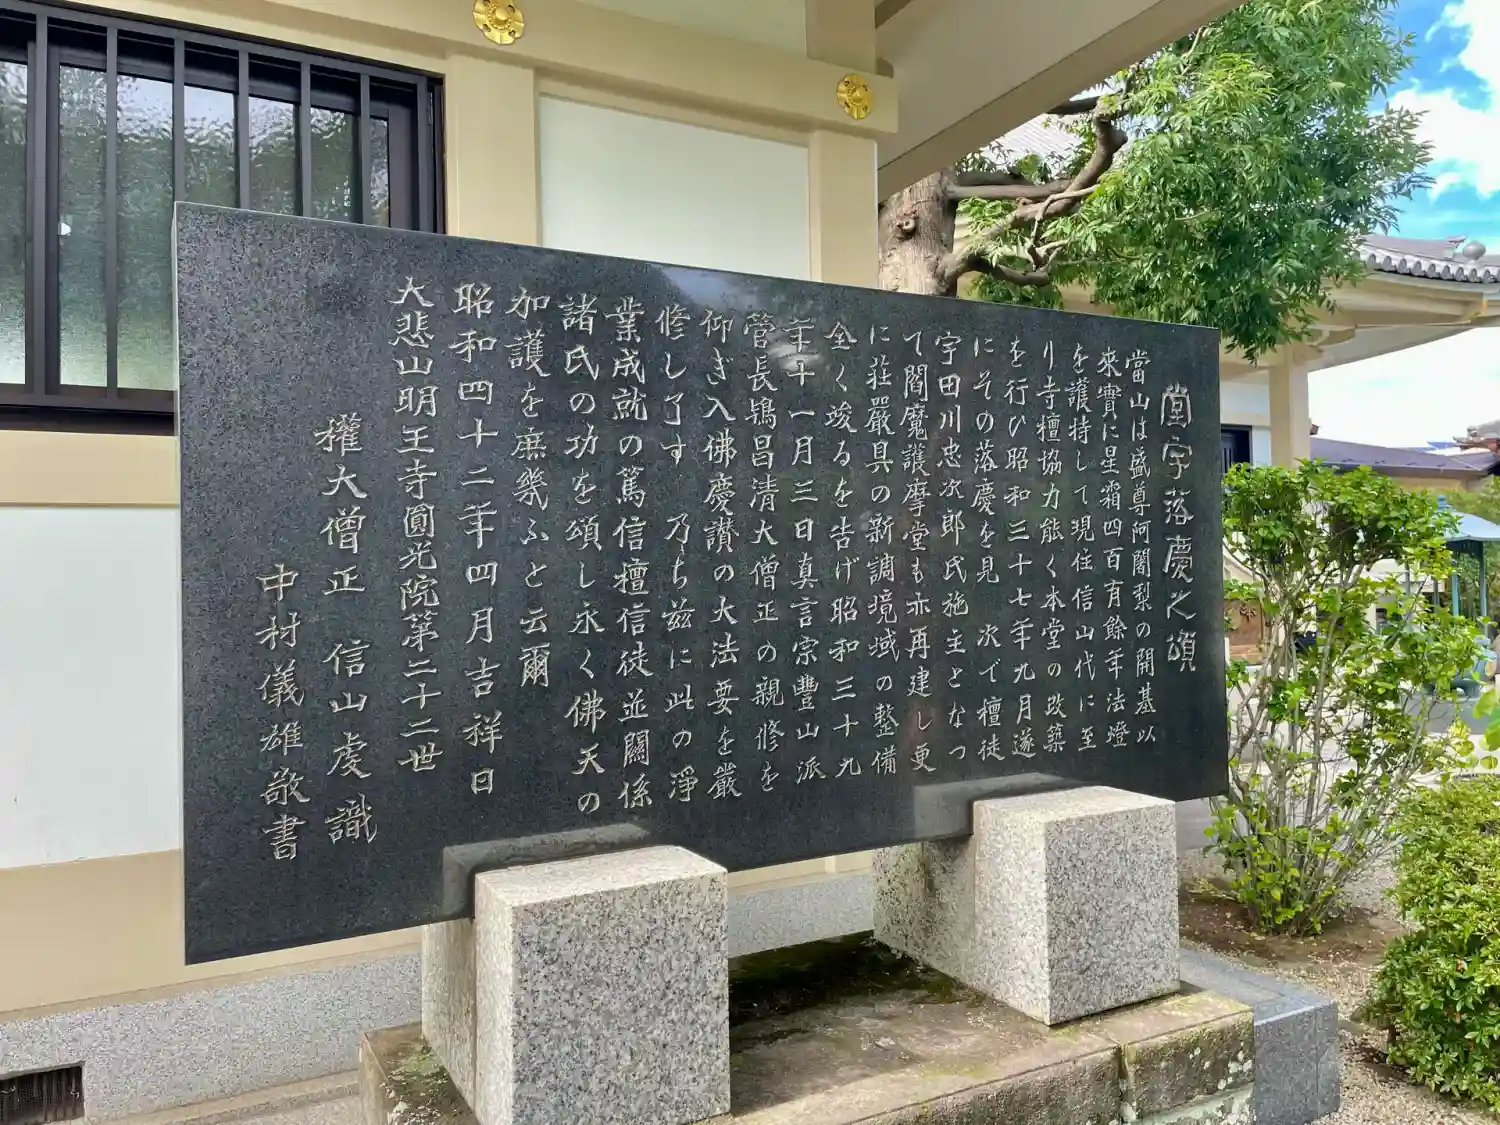 堂宇落慶之頌
當山は盛尊阿闍梨の開基以
來實に星霜四百有餘年法燈
を護持して現住信山代に至
り寺檀協力能く本堂の改築
を行ひ昭和三十七年九月遂
にその落慶を見 次で檀徒
宇田川忠次郎氏施主となつ
て閻魔護摩堂も亦再建し更
に荘嚴具の新調境域の整備
全く竣るを告げ昭和三十九
年十一月三日真言宗豐山派
管長鴇昌清大僧正の親修を
仰ぎ入佛慶讃の大法要を嚴
修し了す 乃ち茲に此の淨
業成就の篤信檀信徒並關係
諸氏の功を頌し永く佛天の
加護を庶幾ふと云爾
昭和四十二年四月吉祥日
大悲山明王寺圓光院第二十二世
權大僧正 信山虔識
中村儀雄敬書